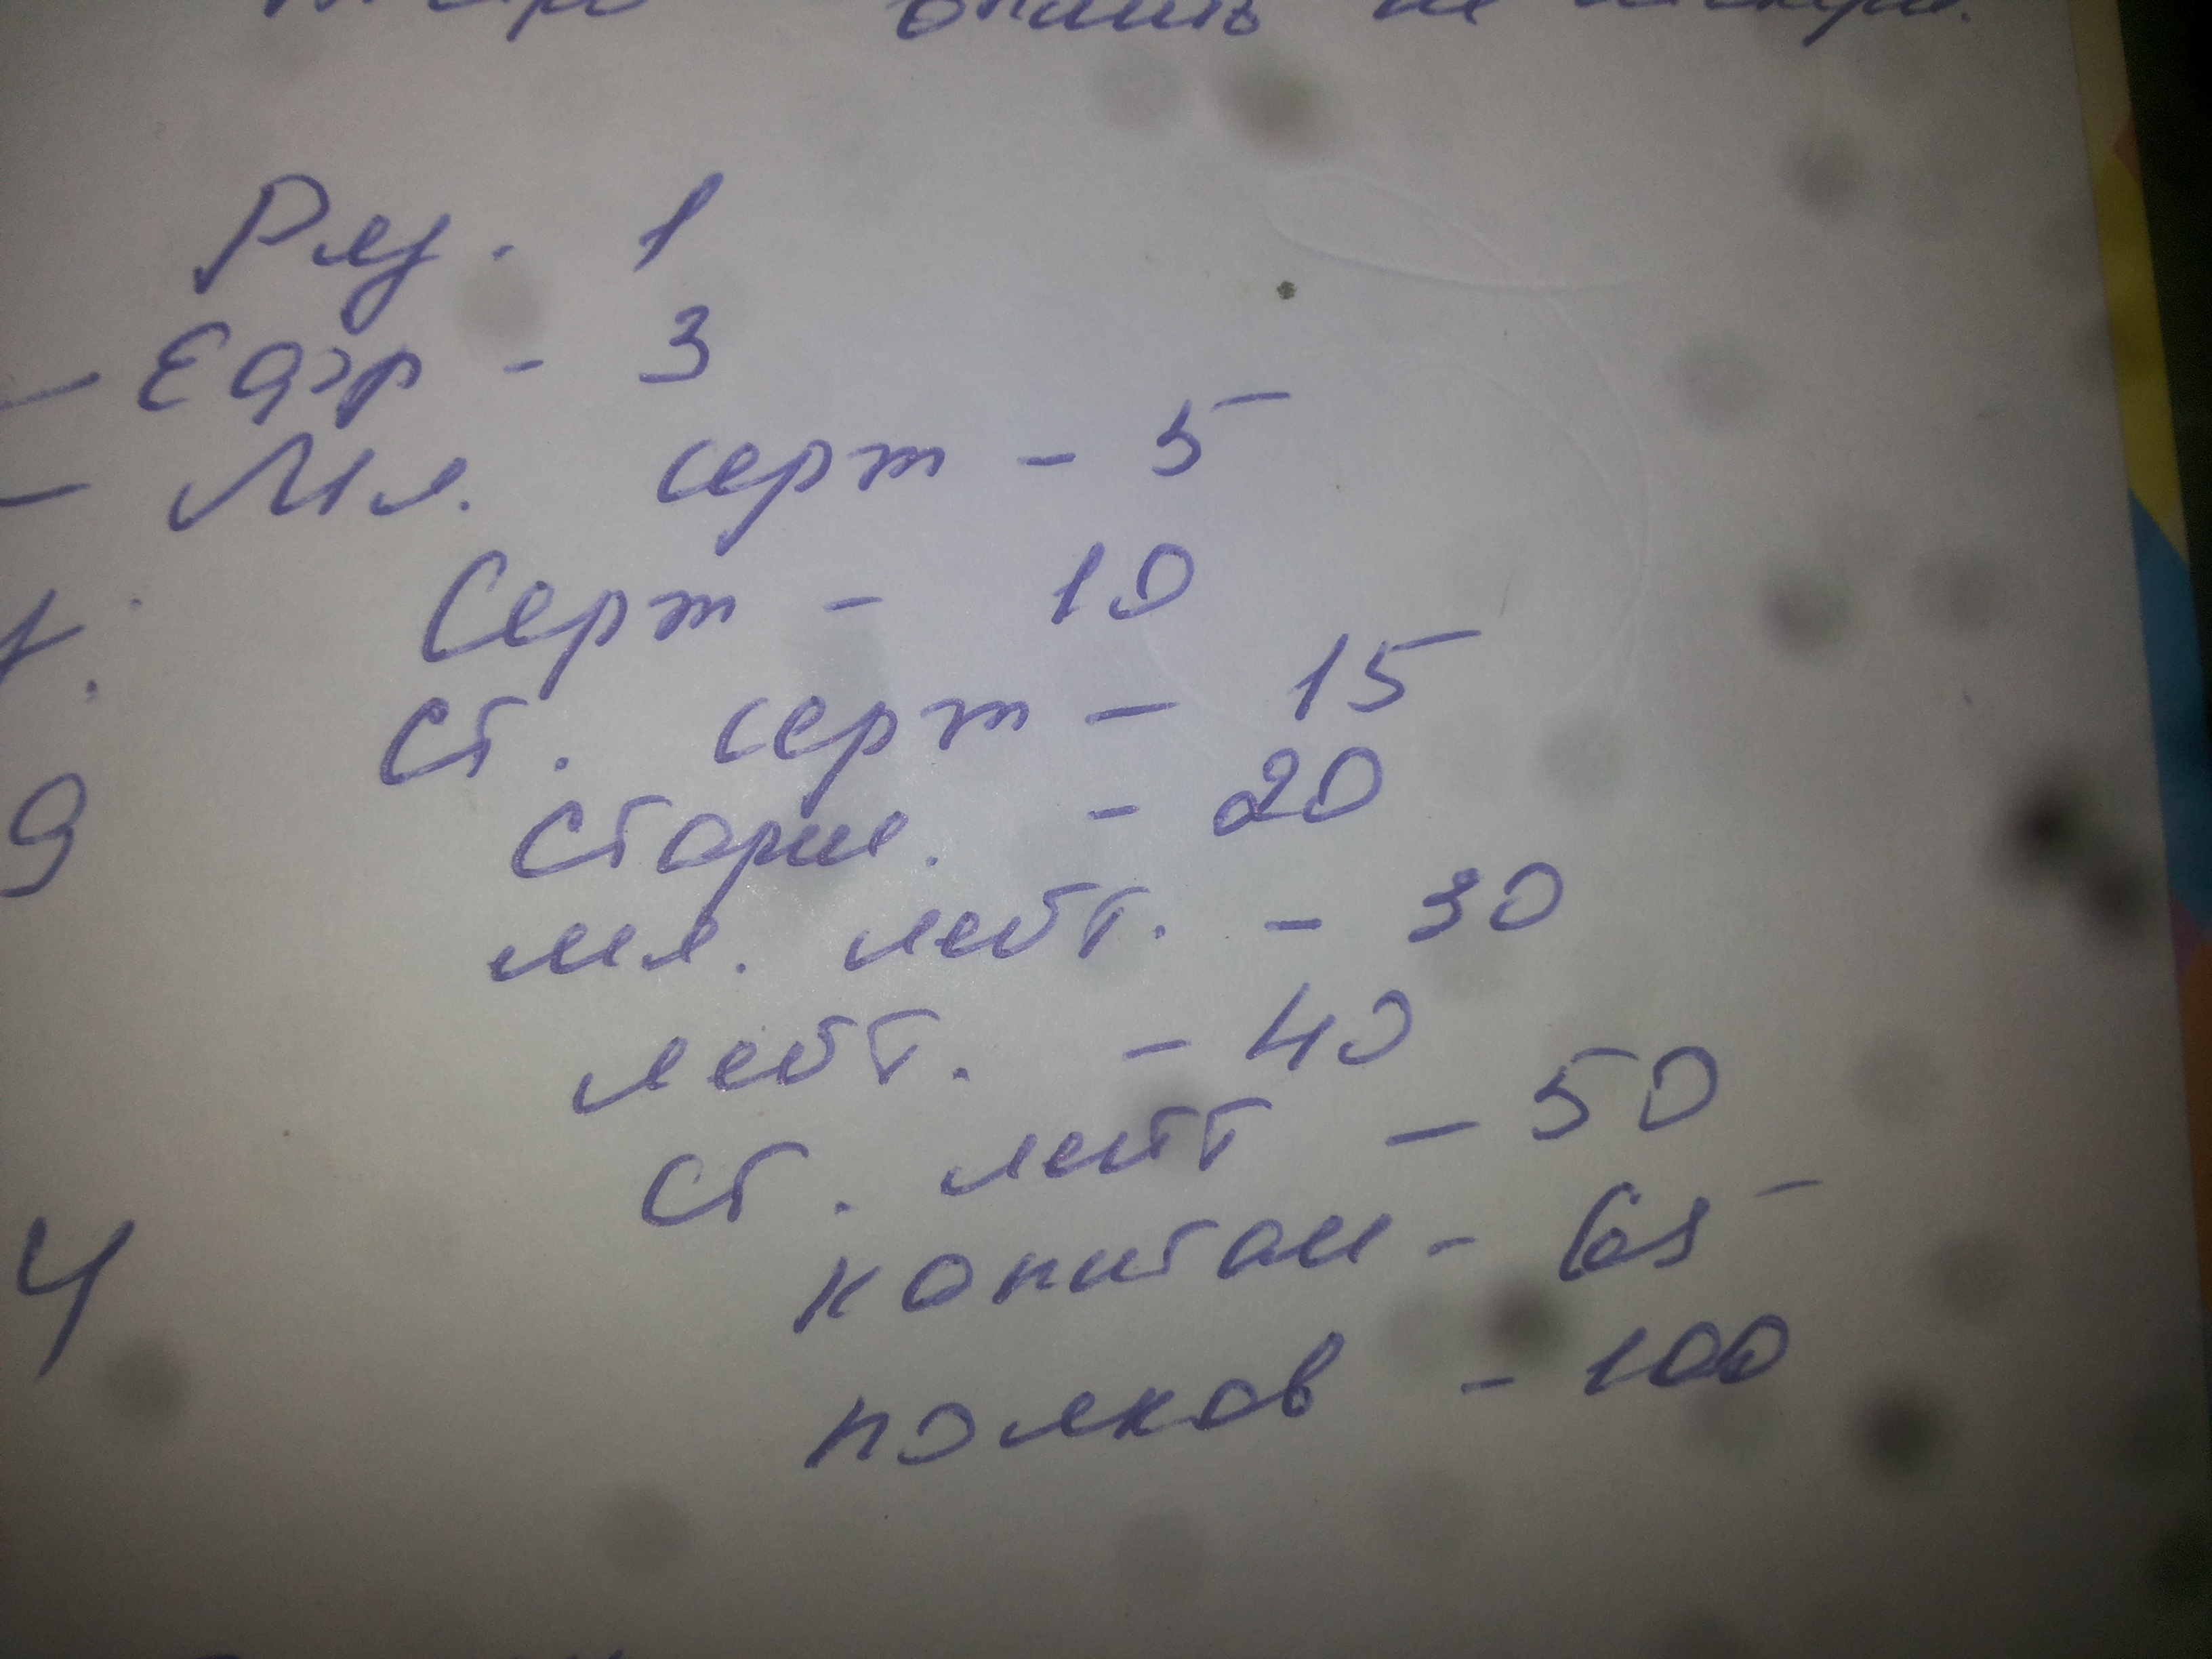 Ряд. 1
— Ефр - 3
— Мл. серж - 5
Серж - 10
Ст. серж - 15
Старш. - 20
мл. лейт. - 30
лейт. - 40
9
ст. лейт - 50
капитан - 65
полков - 100
4